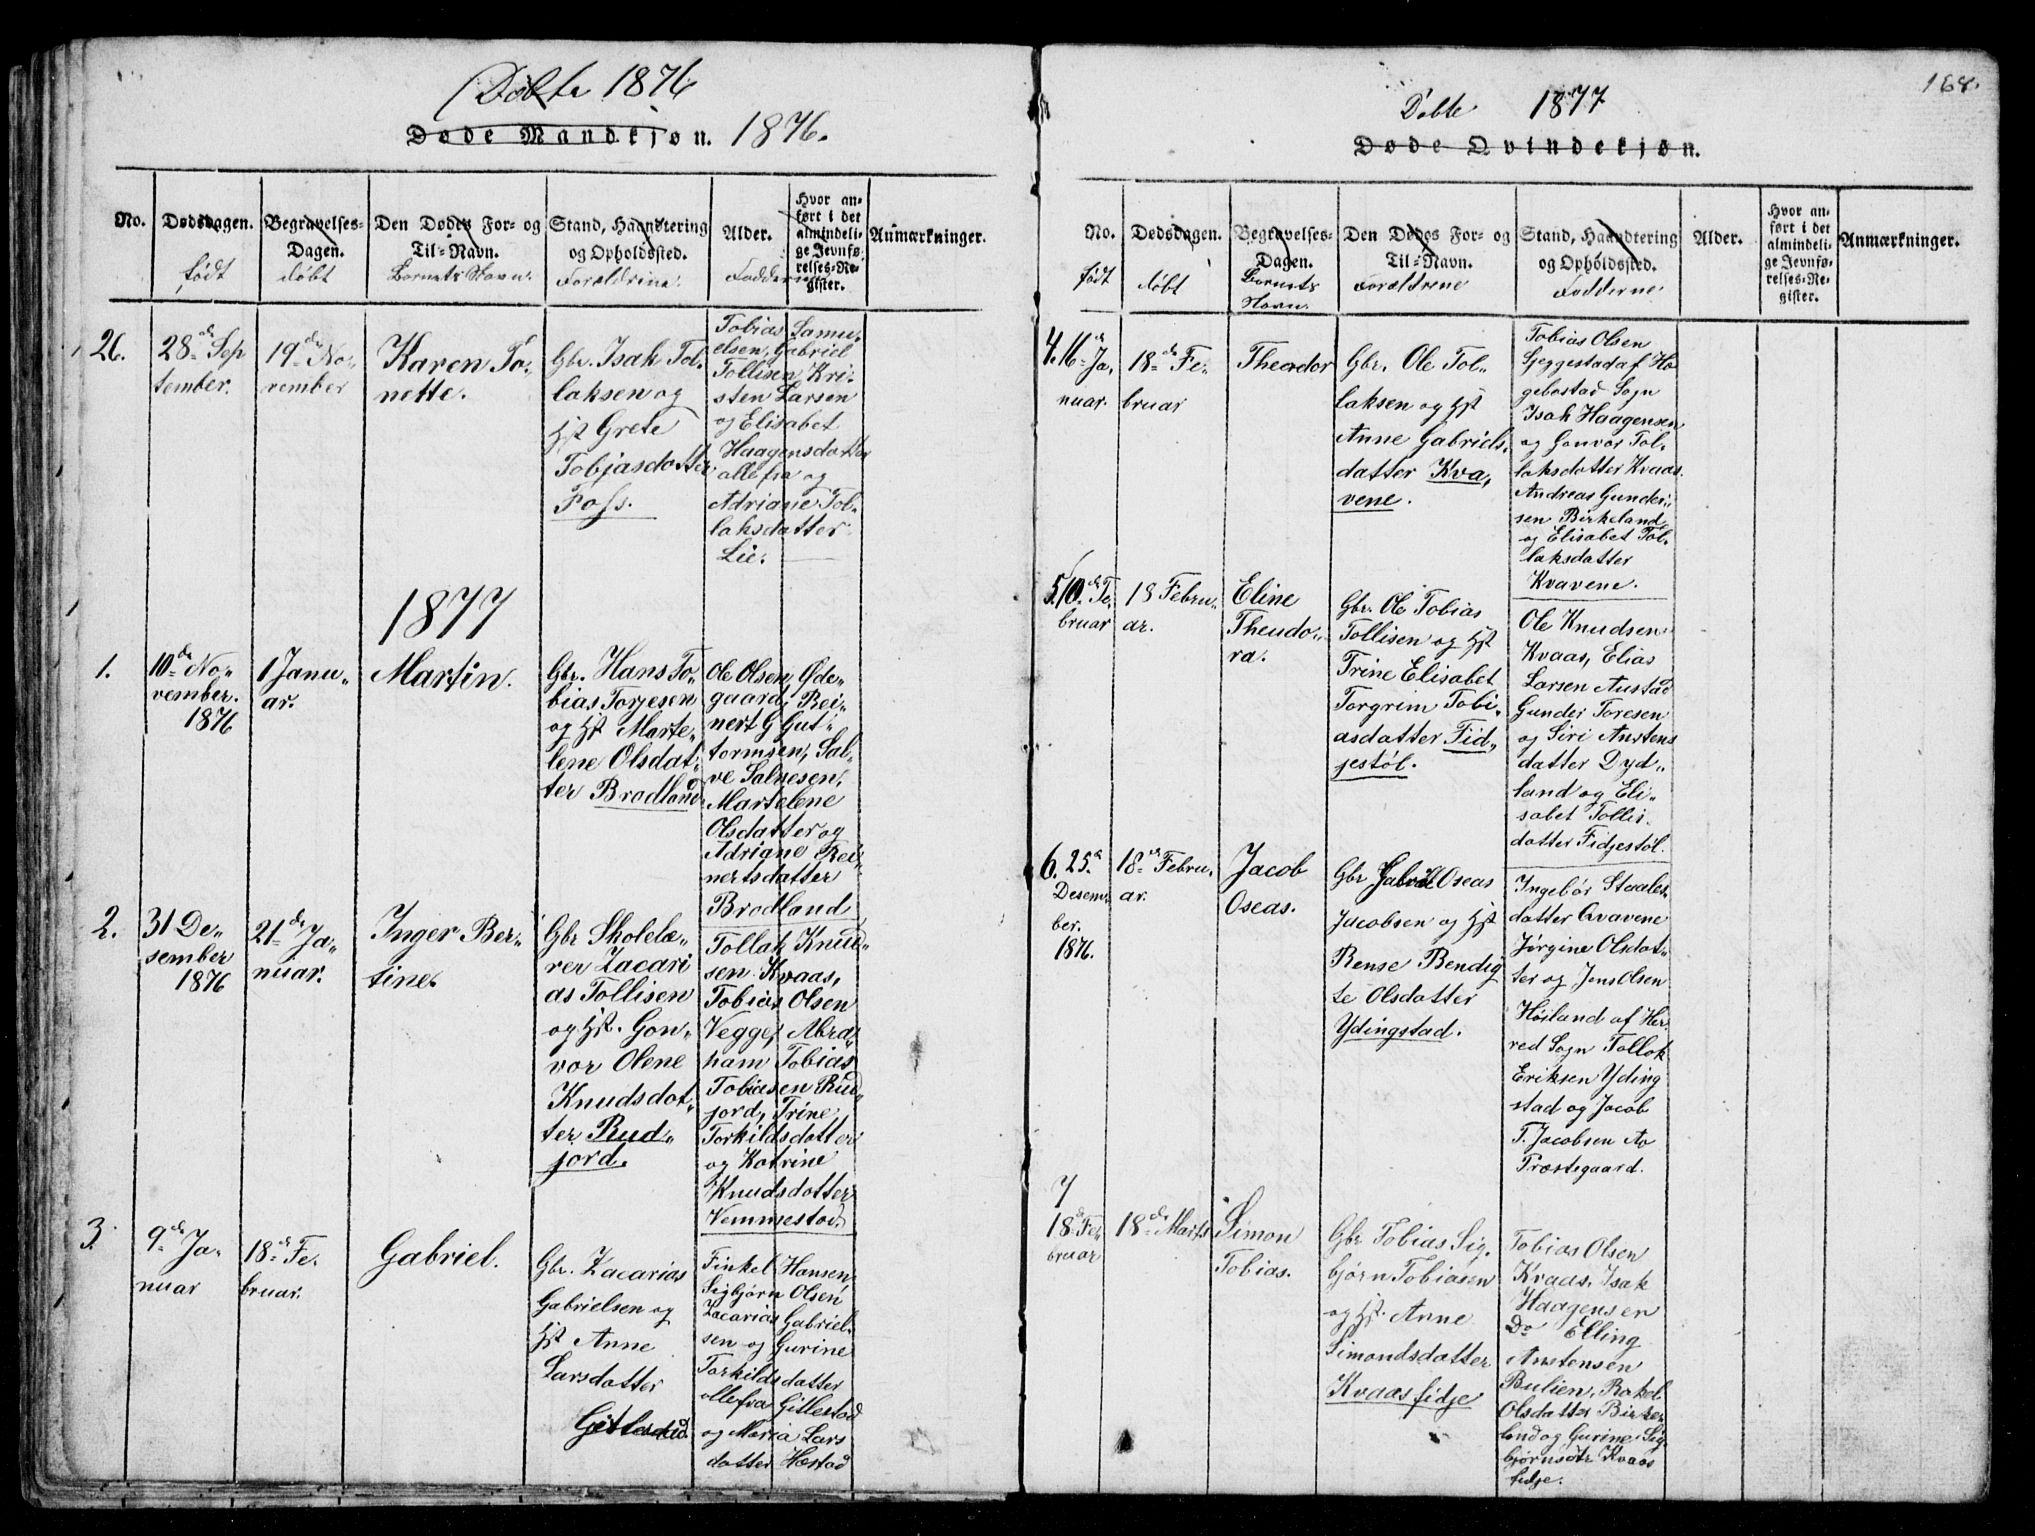 Døbte 1876
Døde Mandkjøn. 1876.
No.
Dødsdagen.
født
Begravelses-
Dagen.
døbt
Den Dødes For- og
Til-Navn.
Barnets Navn.
Stand, Haandtering
og Opholdssted.
Forældrine.
Alder.
Fadderne
Hvor an-
ført i det
almindeli-
ge Jevnfø-
relses-Re-
gister.
Anmærkninger.
26.
28de Sep
tember.
19de No-
vember
Karen To-
nette.
Gbr. Isak Tol-
laksen og
Hst Grete
Tobjasdatter
Foss.
Tobias Samu-
elsen, Gabriel
Tollisen Kri-
sten Larsen
og Elisabet
Haagensdatter
alle fra og
Adriane Tol-
laksdatter
Lie.
1877
1.
10de No-
vember.
1876
1 Janu-
ar.
Martin.
Gbr. Hans To-
bias Torjesen
og Hst Marte-
lene Olsdat-
ter Brodland
Ole Olsen, Øde-
gaard, Rei-
nert G Gut-
tormsen, Sal-
ve Salvesen,
Martelene
Olsdatter og
Adriane Rei-
nertsdatter
Brodland
2.
31 De-
sember
1876
21de Ja-
nuar.
Inger Ber-
tine.
Gbr Skolelæ-
rer Zacari
as Tollisen
og Hst. Gon-
vor Olene
Knudsdat-
ter Rud-
jord.
Tollak Knud-
sen Kvaas,
Tobias Olsen
Vegge, Abra-
ham Tobias
Tobiasen Rud-
jord, Trine
Torkildsdatter
og Katrine
Knudsdatter
Vemmestad
3.
9de Ja-
nuar
18de Fe-
bruar.
Gabriel.
Gbr. Zacarias
Gabrielsen og
Hst Anne
Larsdatter
Gitlestad
Finkel Hansen,
Sigbjørn Olsen
Zacarias Gabriel-
sen og Gurine
Torkildsdatter
alle fra Gitlestad
og Maria Lars
datter Hæstad
168.
Døbte 1877
Døde Qvindekjøn.
No.
født
Dødsdagen.
døbt
Begravelses-
Dagen.
Barnets
Navn.
Den Dødes For- og
Til-Navn.
Forældrene
Stand, Haandtering
og Opholdssted.
Fadderne
Alder.
Hvor an-
ført i det
almindeli-
ge Jevnfø-
relses-Re-
gister.
Anmærkninger.
4.
16de Ja-
nuar.
18de Fe-
bruar
Theodor
Gbr. Ole Tol-
laksen og Hst
Anne Gabriels-
datter Kva-
vene.
Tobias Olsen
Sjeggestad af Hø
gebostad Sogn
Isak Haagensen
og Gonvor Tol-
laksdatter Kvaas.
Andreas Gunder-
sen Birkeland
og Elisabet Tol-
laksdatter
Kvavene.
5.
10de Fe-
bruar
18 Febru-
ar.
Eline
Theodo-
ra.
Gbr. Ole Tobias
Tollisen og Hst
Trine Elisabet
Torgrim Tobi-
asdatter Fid-
jestøl.
Ole Knudsen
Kvaas, Elias
Larsen Austad
Gunder Toresen
og Siri Anstens
datter Dyd-
land og Eli-
sabet Tollis-
datter Fidjestøl.
6.
25d
Desem-
ber.
1876.
18de Febru-
ar.
Jacob
Oseas.
Gbr Gabriel Oseas
Jacobsen og Hst
Rense Bendig
te Olsdatter
Ydingstad.
Ingebør Staales-
datter Qvavene
Jørgine Olsdat-
ter og Jens Olsen
Høiland af Her-
red Sogn Tollok
Eriksen Yding
stad og Jacob
T. Jacobsen Av
Præstegaard.
7
18de Fe-
bruar
18de Marts
Simon
Tobias.
Gbr Tobias Sig-
bjørn Tobiasen
og Hst. Anne
Simondsdatter
Kvaasfidje
Tobias Olsen
Kvaas, Isak
Haagensen
Do Elling
Anstensen
Bulien, Rakel
Olsdatter Birke-
land og Gurine Sig-
bjørnsdtr Kvaas
fidje.